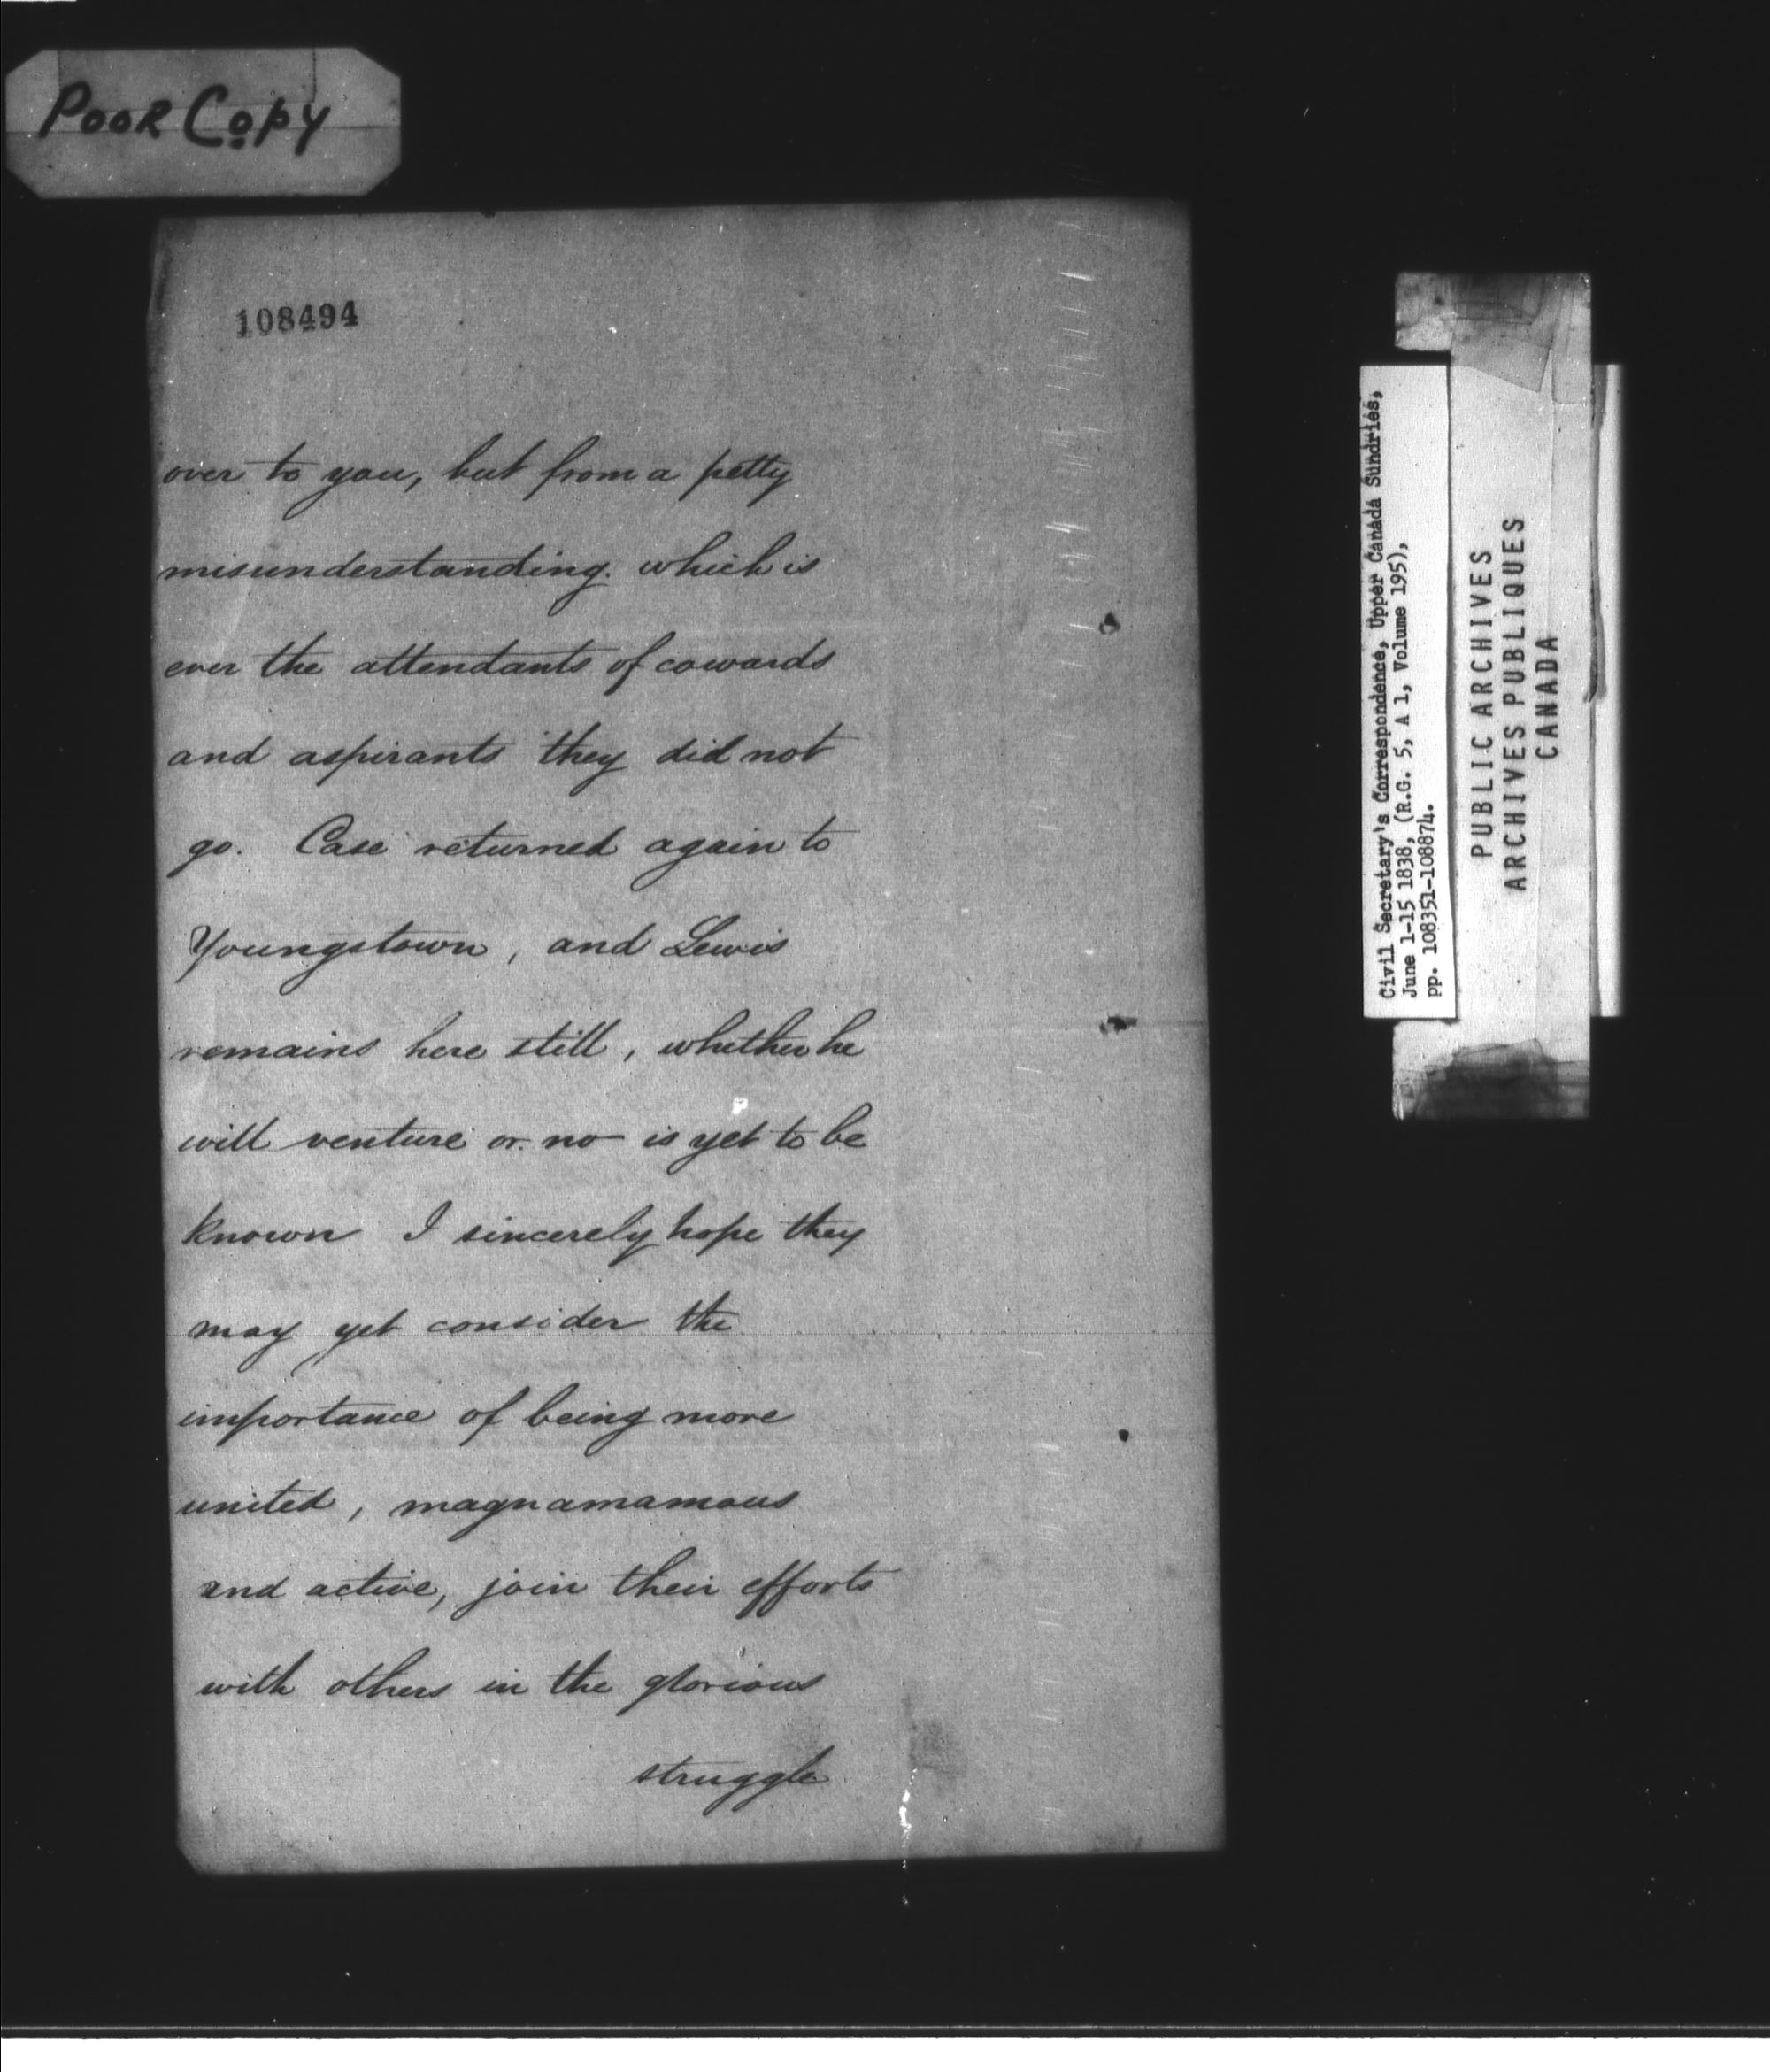 Poor Copy
108494
over to you, but from a petty
misunderstanding. which is
ever the attendants of cowards
and aspirants they did not
go. Case returned again to
Youngstown, and Lewis
remains here still, whether he
will venture or no is yet to be
known I sincerely hope they
may yet consider the
importance of being more
united, magnamamous
and active, join their efforts
with others in the glorious
struggle
Civil Secretary's Correspondence, Upper Canada Sundries,
June 1-15 1838, (R.G. 5, A 1, Volume 195),
pp. 108351-108874.
PUBLIC ARCHIVES
ARCHIVES PUBLIQUES
CANADA